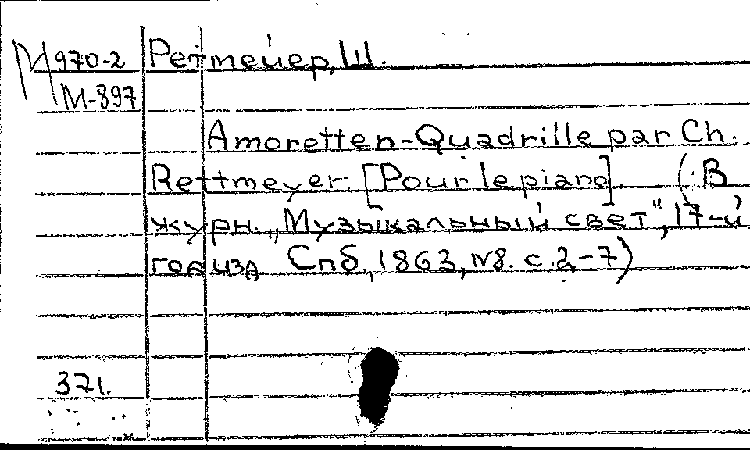 М 970-2 Ретмейер, Ш.
М-897
Amoretten-Quadrille par Ch.
Rettmeyer [Pour le piano]. (В
журн. „Музыкальный свет“, 17-й
год изд Спб, 1863, №8. с.2-7)
371.